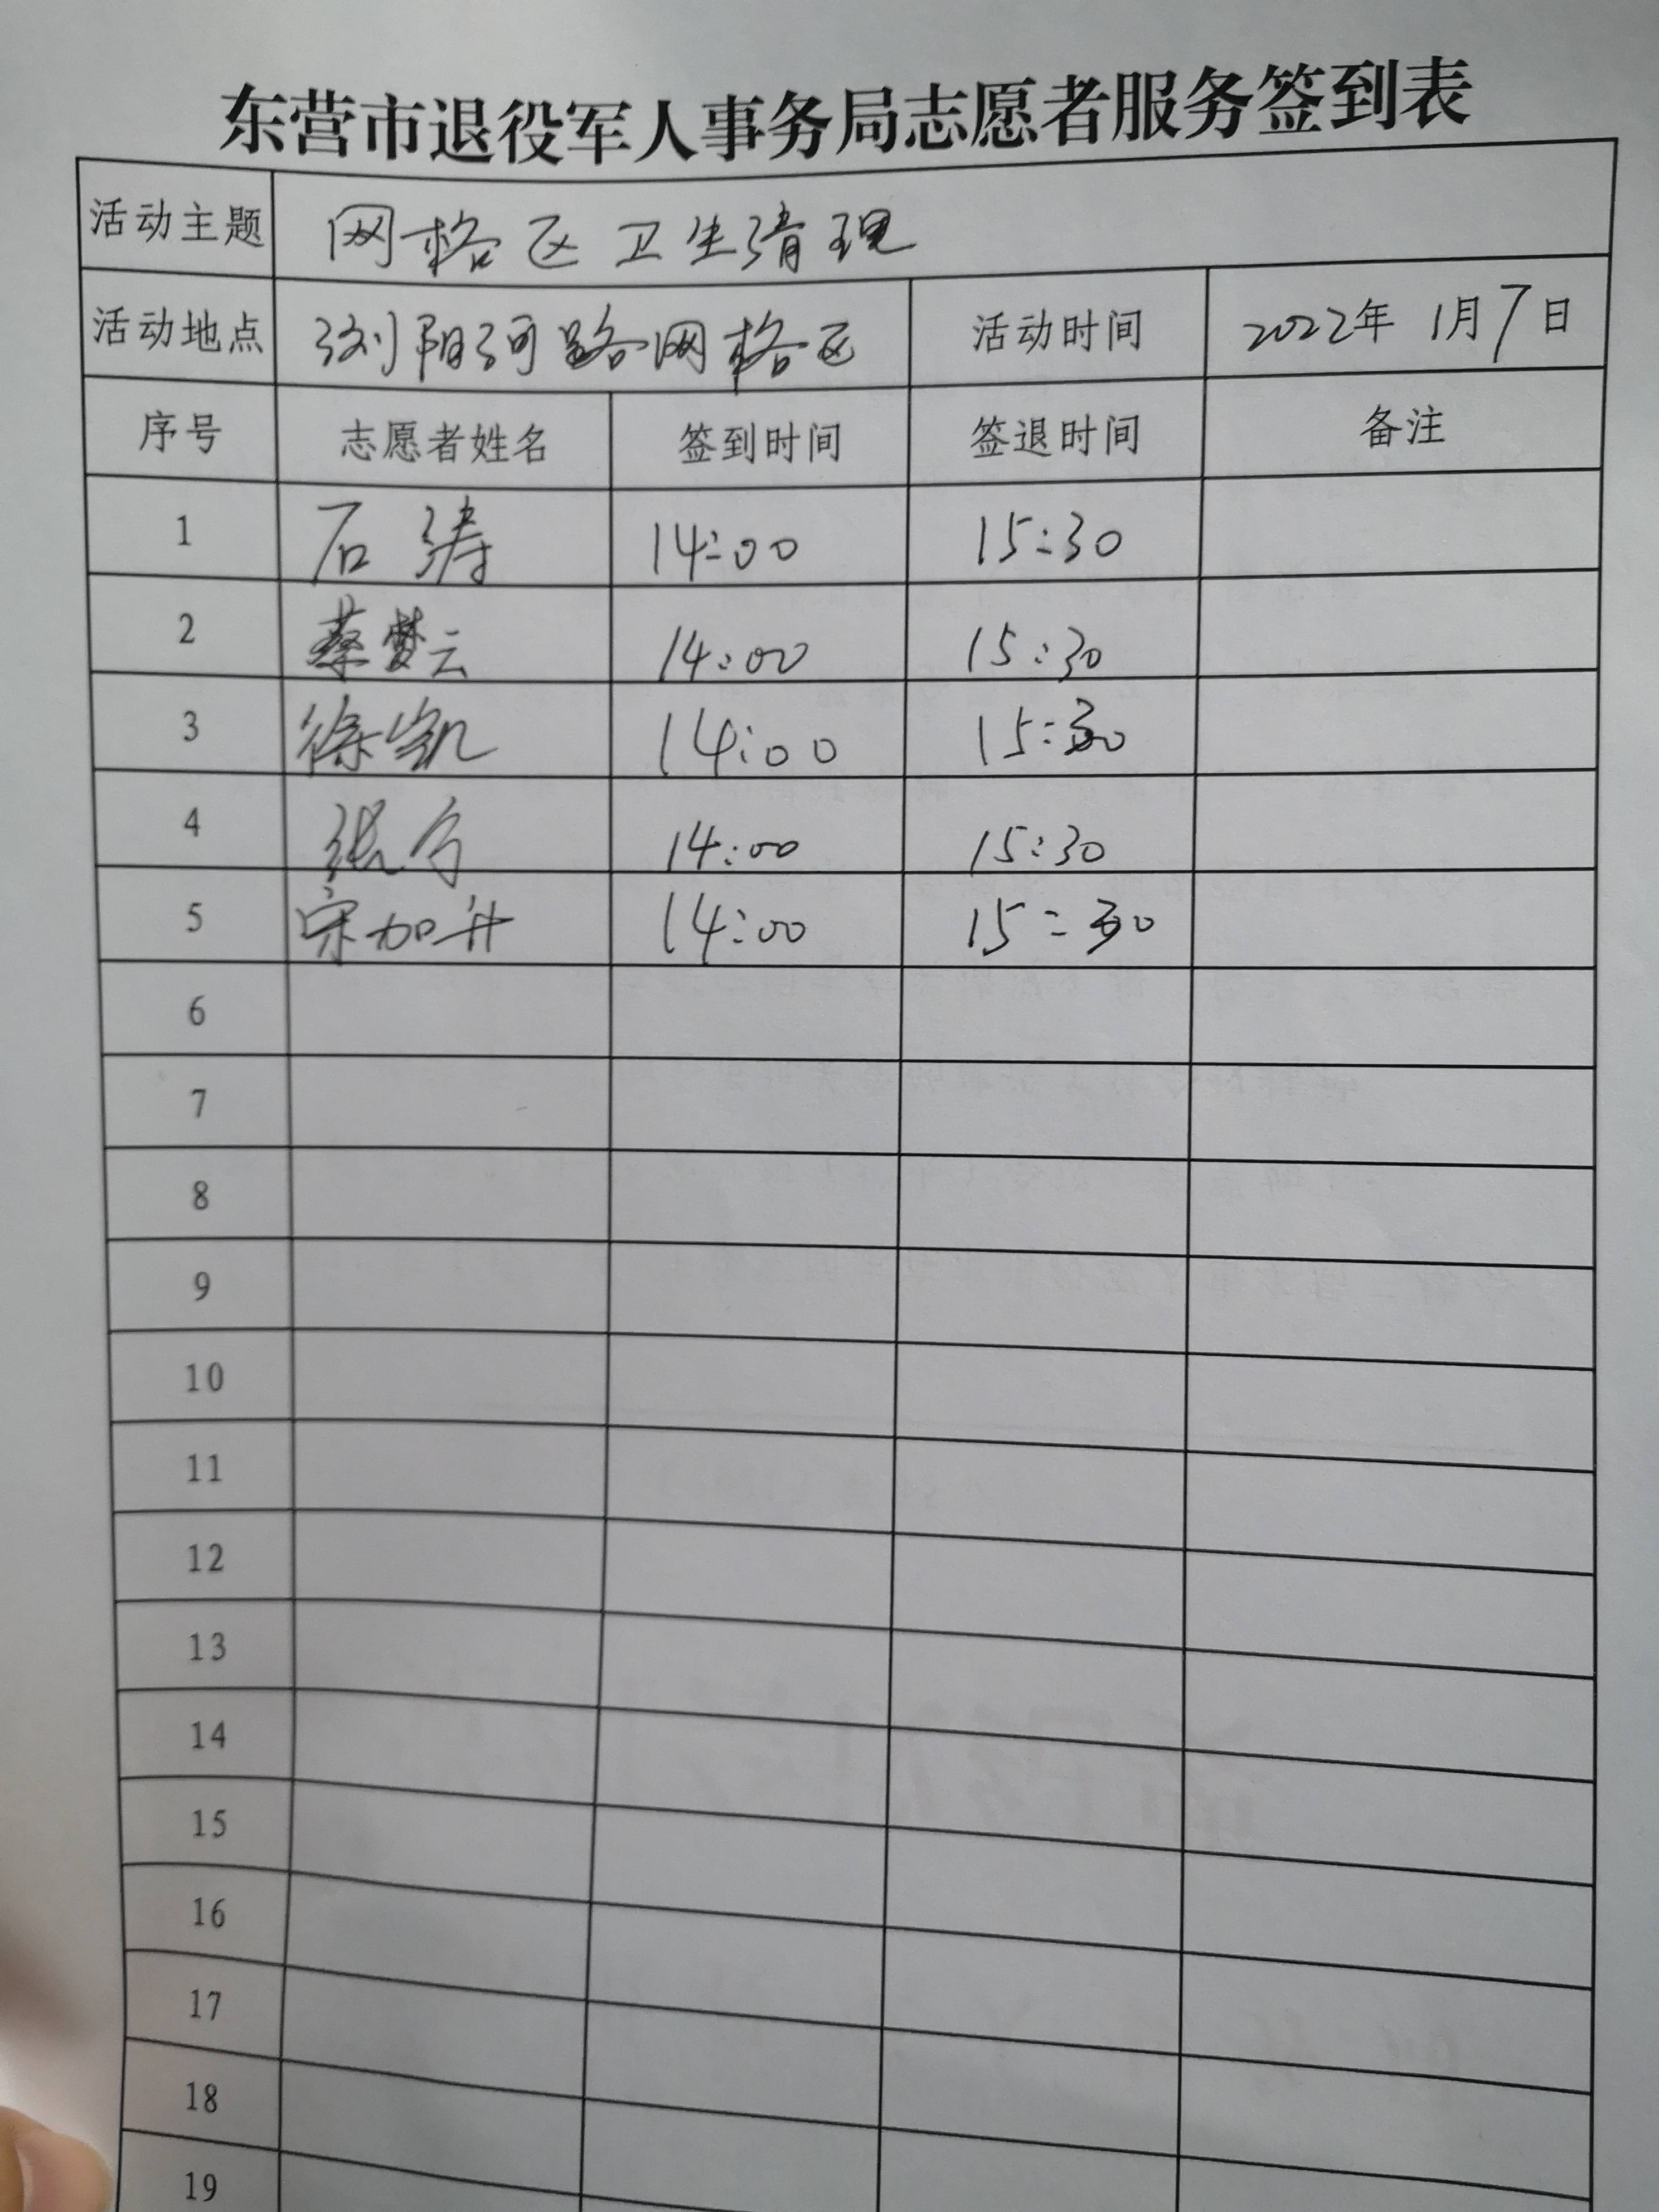 东营市退役军人事务局志愿者服务签到表
活动主题 网格区卫生清理
活动地点 浏阳河路网格区 活动时间 2022年 1月7日
序号 志愿者姓名 签到时间 签退时间 备注
1 石涛 14:00 15:30
2 蔡梦云 14:00 15:30
3 徐凯 14:00 15:30
4 14:00 15:30
5 宋加升 14:00 15:30
6
7
8
9
10
11
12
13
14
15
16
17
18
19